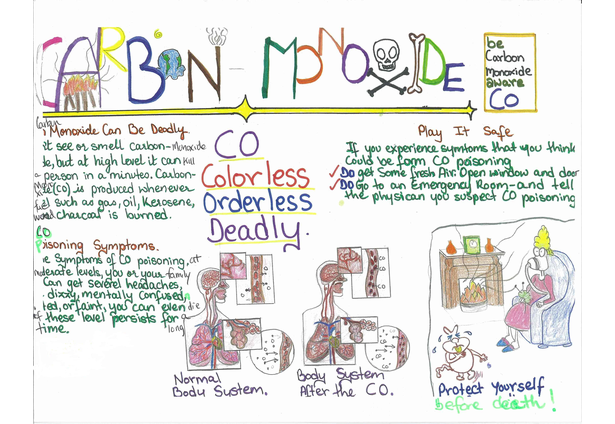 CARBON-MONOXIDE
be
Carbon
monoxide
aware
CO
Carbon
Monoxide Can Be Deadly
't see or smell carbon-Monoxide
te, but at high level it can kill
a person in a minutes. Carbon-
(CO) is produced whenever
fuel such as gas, oil, Kerosene,
wood charcoal is burned.
CO
Poisoning Symptoms.
e Symptoms of CO poisoning, at
moderate levels, you or your family
Can get severel headaches,
dizzy, mentally confused,
ted, or faint, you can even die
if these level persists for a
time. long
CO
Colorless
Orderless
Deadly.
Play It Safe
If you experience symtoms that you think
Could be form CO poisoning
✓ DO get Some fresh Air. Open window and door
✓ DO Go to an Emergency Room-and tell
the physican you suspect CO poisoning
Normal
Body System.
Body System
After the CO.
Protect Yourself
Before death!